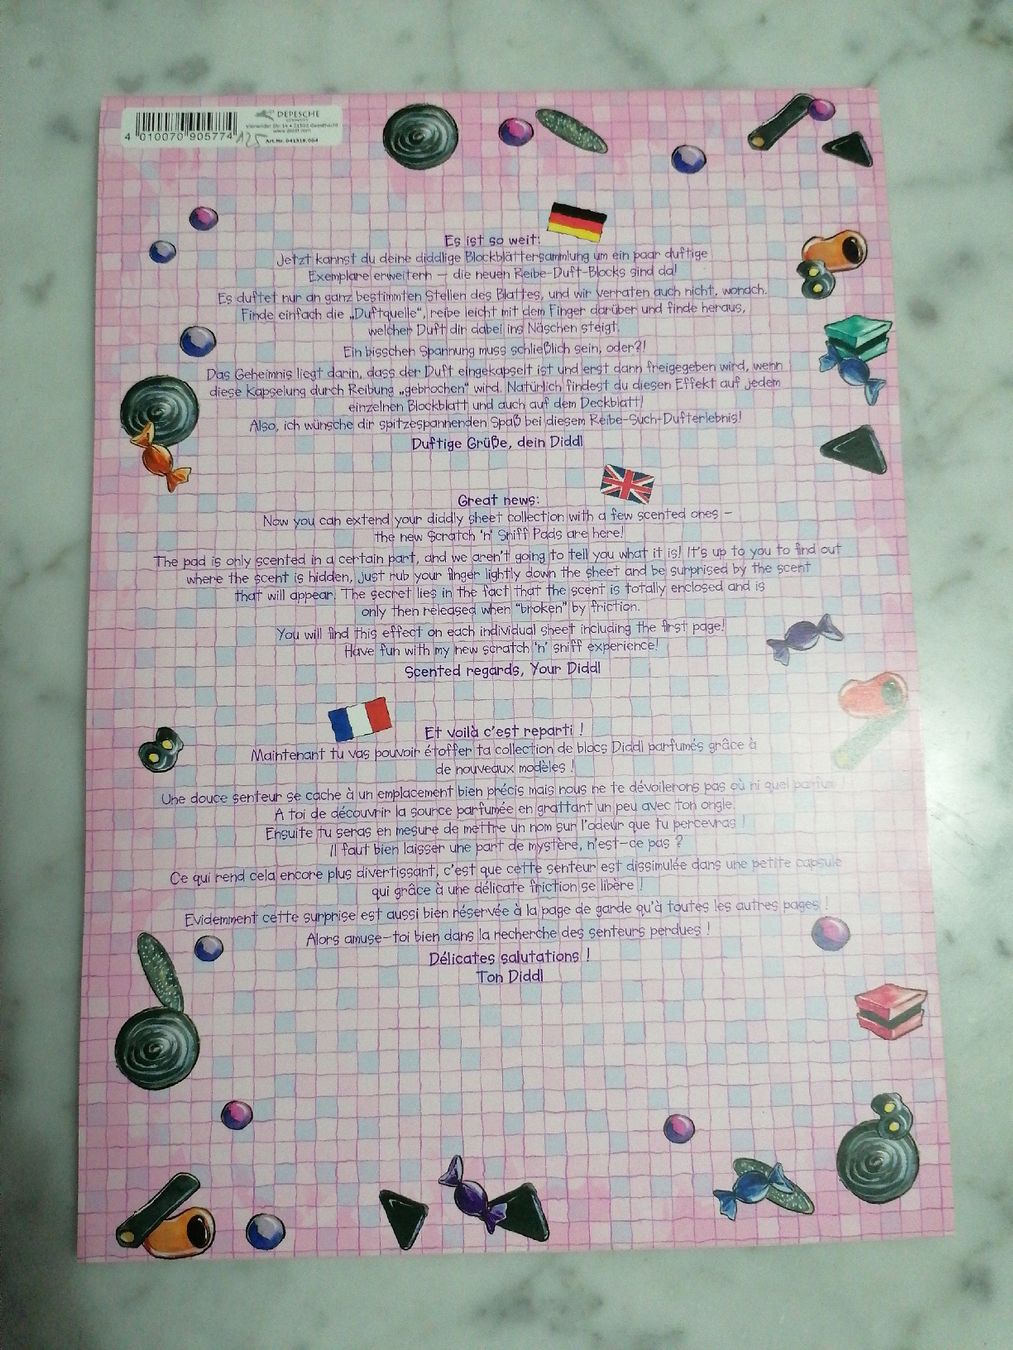 DEPESCHE
www.diddl.com
4 010070 905774
A25
Art.Nr. 041318.004
Es ist so weit:
Jetzt kannst du deine diddlige Blockblättersammlung um ein paar duftige
Exemplare erweitern – die neuen Reibe-Duft-Blocks sind da!
Es duftet nur an ganz bestimmten Stellen des Blattes, und wir verraten auch nicht, wonach.
Finde einfach die „Duftquelle“, reibe leicht mit dem Finger darüber und finde heraus,
welcher Duft dir dabei ins Näschen steigt.
Ein bisschen Spannung muss schließlich sein, oder?!
Das Geheimnis liegt darin, dass der Duft eingekapselt ist und erst dann freigegeben wird, wenn
diese Kapselung durch Reibung „gebrochen“ wird. Natürlich findest du diesen Effekt auf jedem
einzelnen Blockblatt und auch auf dem Deckblatt!
Also, ich wünsche dir spitzespannenden Spaß bei diesem Reibe-Such-Dufterlebnis!
Duftige Grüße, dein Diddl
Great news:
Now you can extend your diddly sheet collection with a few scented ones –
the new Scratch 'n' Sniff Pads are here!
The pad is only scented in a certain part, and we aren't going to tell you what it is! It's up to you to find out
where the scent is hidden, just rub your finger lightly down the sheet and be surprised by the scent
that will appear. The secret lies in the fact that the scent is totally enclosed and is
only then released when "broken" by friction.
You will find this effect on each individual sheet including the first page!
Have fun with my new scratch 'n' sniff experience!
Scented regards, Your Diddl
Et voilà c'est reparti !
Maintenant tu vas pouvoir étoffer ta collection de blocs Diddl parfumés grâce à
de nouveaux modèles !
Une douce senteur se cache à un emplacement bien précis mais nous ne te dévoilerons pas où ni quel parfum !
A toi de découvrir la source parfumée en grattant un peu avec ton ongle.
Ensuite tu seras en mesure de mettre un nom sur l'odeur que tu percevras !
Il faut bien laisser une part de mystère, n'est-ce pas ?
Ce qui rend cela encore plus divertissant, c'est que cette senteur est dissimulée dans une petite capsule
qui grâce à une délicate friction se libère !
Evidemment cette surprise est aussi bien réservée à la page de garde qu'à toutes les autres pages !
Alors amuse-toi bien dans la recherche des senteurs perdues !
Délicates salutations !
Ton Diddl